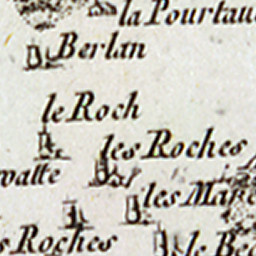 la Pourtau
Berlan
le Roch
les Roches
valle
les Mare
s Roches
le Bec